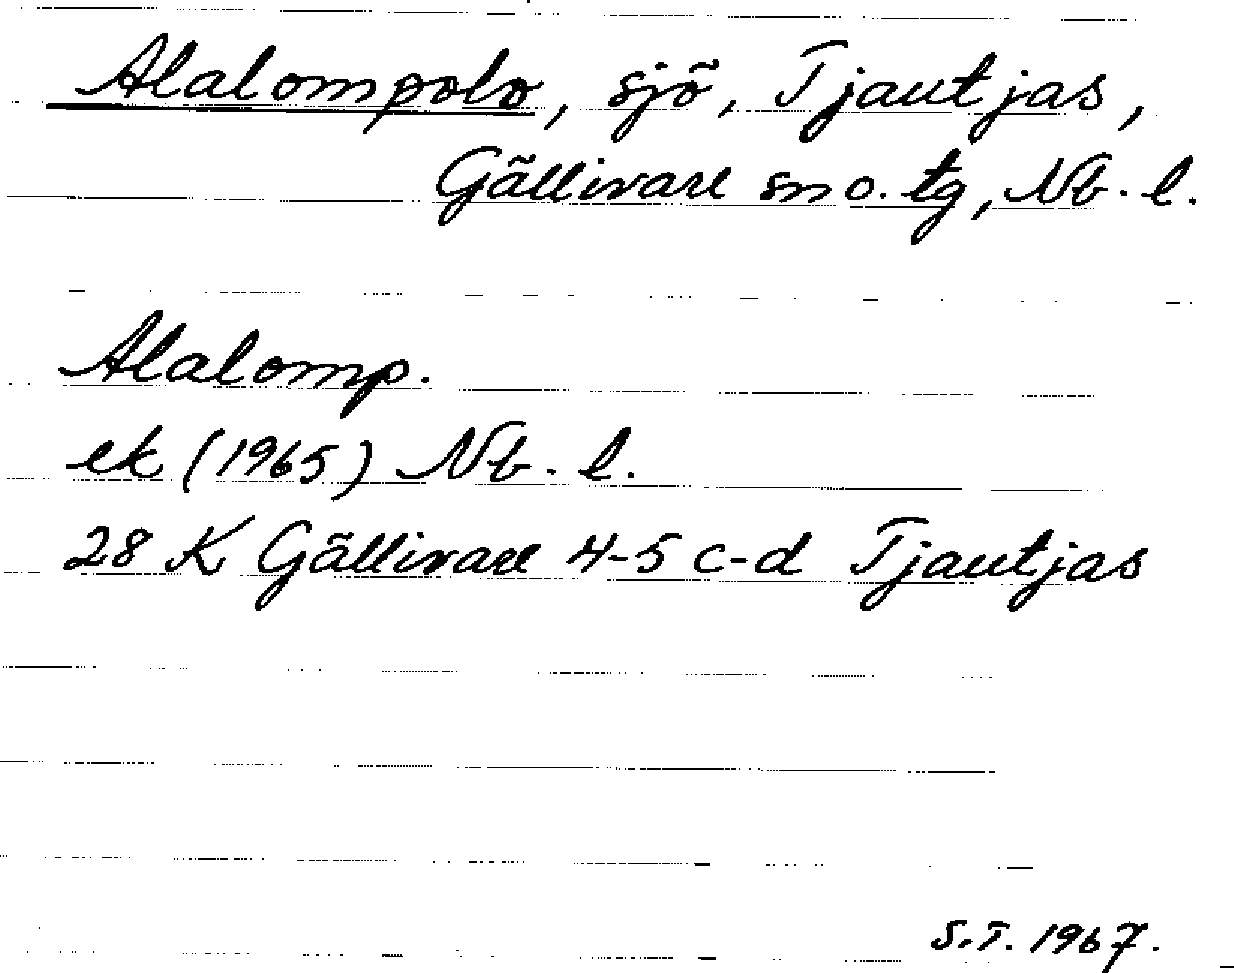 Alalompolo, sjö, Tjautjas,
Gällivare sn o. tg, Nb. l.
Alalomp.
ek (1965) Nb. l.
28 K Gällivare 4-5 c-d Tjautjas
S.T. 1967.